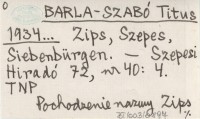 0
BARLA-SZABÓ Titus
1934... Zips, Szepes,
Siebenbürgen. — Szepesi
Hiradó 72, nr 40: 4.
TNP
Pochodzenie nazwy Zips